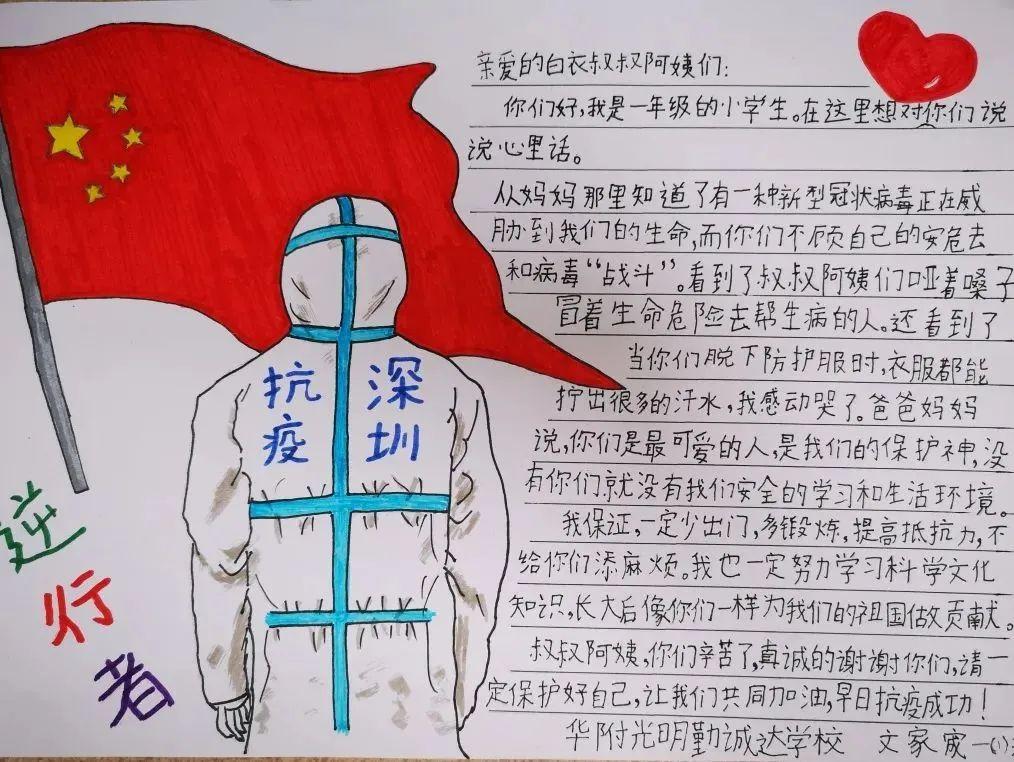 亲爱的白衣叔叔阿姨们:
你们好,我是一年级的小学生。在这里想对你们说
说心里话。
从妈妈那里知道了有一种新型冠状病毒正在威
胁到我们的生命,而你们不顾自己的安危去
和病毒“战斗”。看到了叔叔阿姨们哑着嗓子
冒着生命危险去帮生病的人。还看到了
当你们脱下防护服时,衣服都能
拧出很多的汗水,我感动哭了。爸爸妈妈
说,你们是最可爱的人,是我们的保护神,没
有你们就没有我们安全的学习和生活环境。
我保证,一定少出门,多锻炼,提高抵抗力,不
给你们添麻烦。我也一定努力学习科学文化
知识,长大后像你们一样为我们的祖国做贡献。
叔叔阿姨,你们辛苦了,真诚的谢谢你们,请一
定保护好自己,让我们共同加油,早日抗疫成功!
华附光明勤诚达学校 文家 一(1)
抗疫
深圳
逆行者